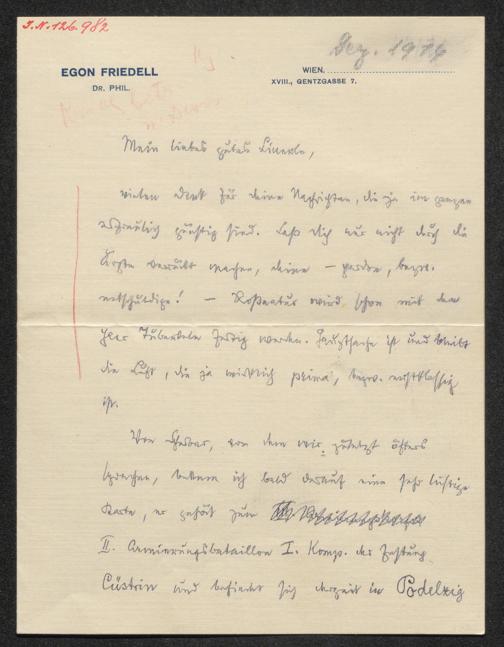 I.N. 126.982
Dez. 1916
EGON FRIEDELL
DR. PHIL.
WIEN,
XVIII., GENTZGASSE 7.
Mein liebes gutes Linerle,
vielen Dank für deine Nachrichten, die ja im ganzen
erfreulich günstig sind. Laß dich nur nicht durch die
Ärzte verrückt machen, deine – pardon, bezw.
entschuldige! – Roßnatur wird schon mit den
Tuberkeln fertig werden. Hauptsache ist und bleibt
die Luft, die ja wirklich prima, bezw. erstklassig
ist.
Von , von dem wir zuletzt öfters
sprachen, bekam ich bald darauf eine sehr lustige
Karte, er gehört zum
II. Armierungsbataillon I. Komp. der Festung
Cüstrin und befindet sich derzeit in Podelzig